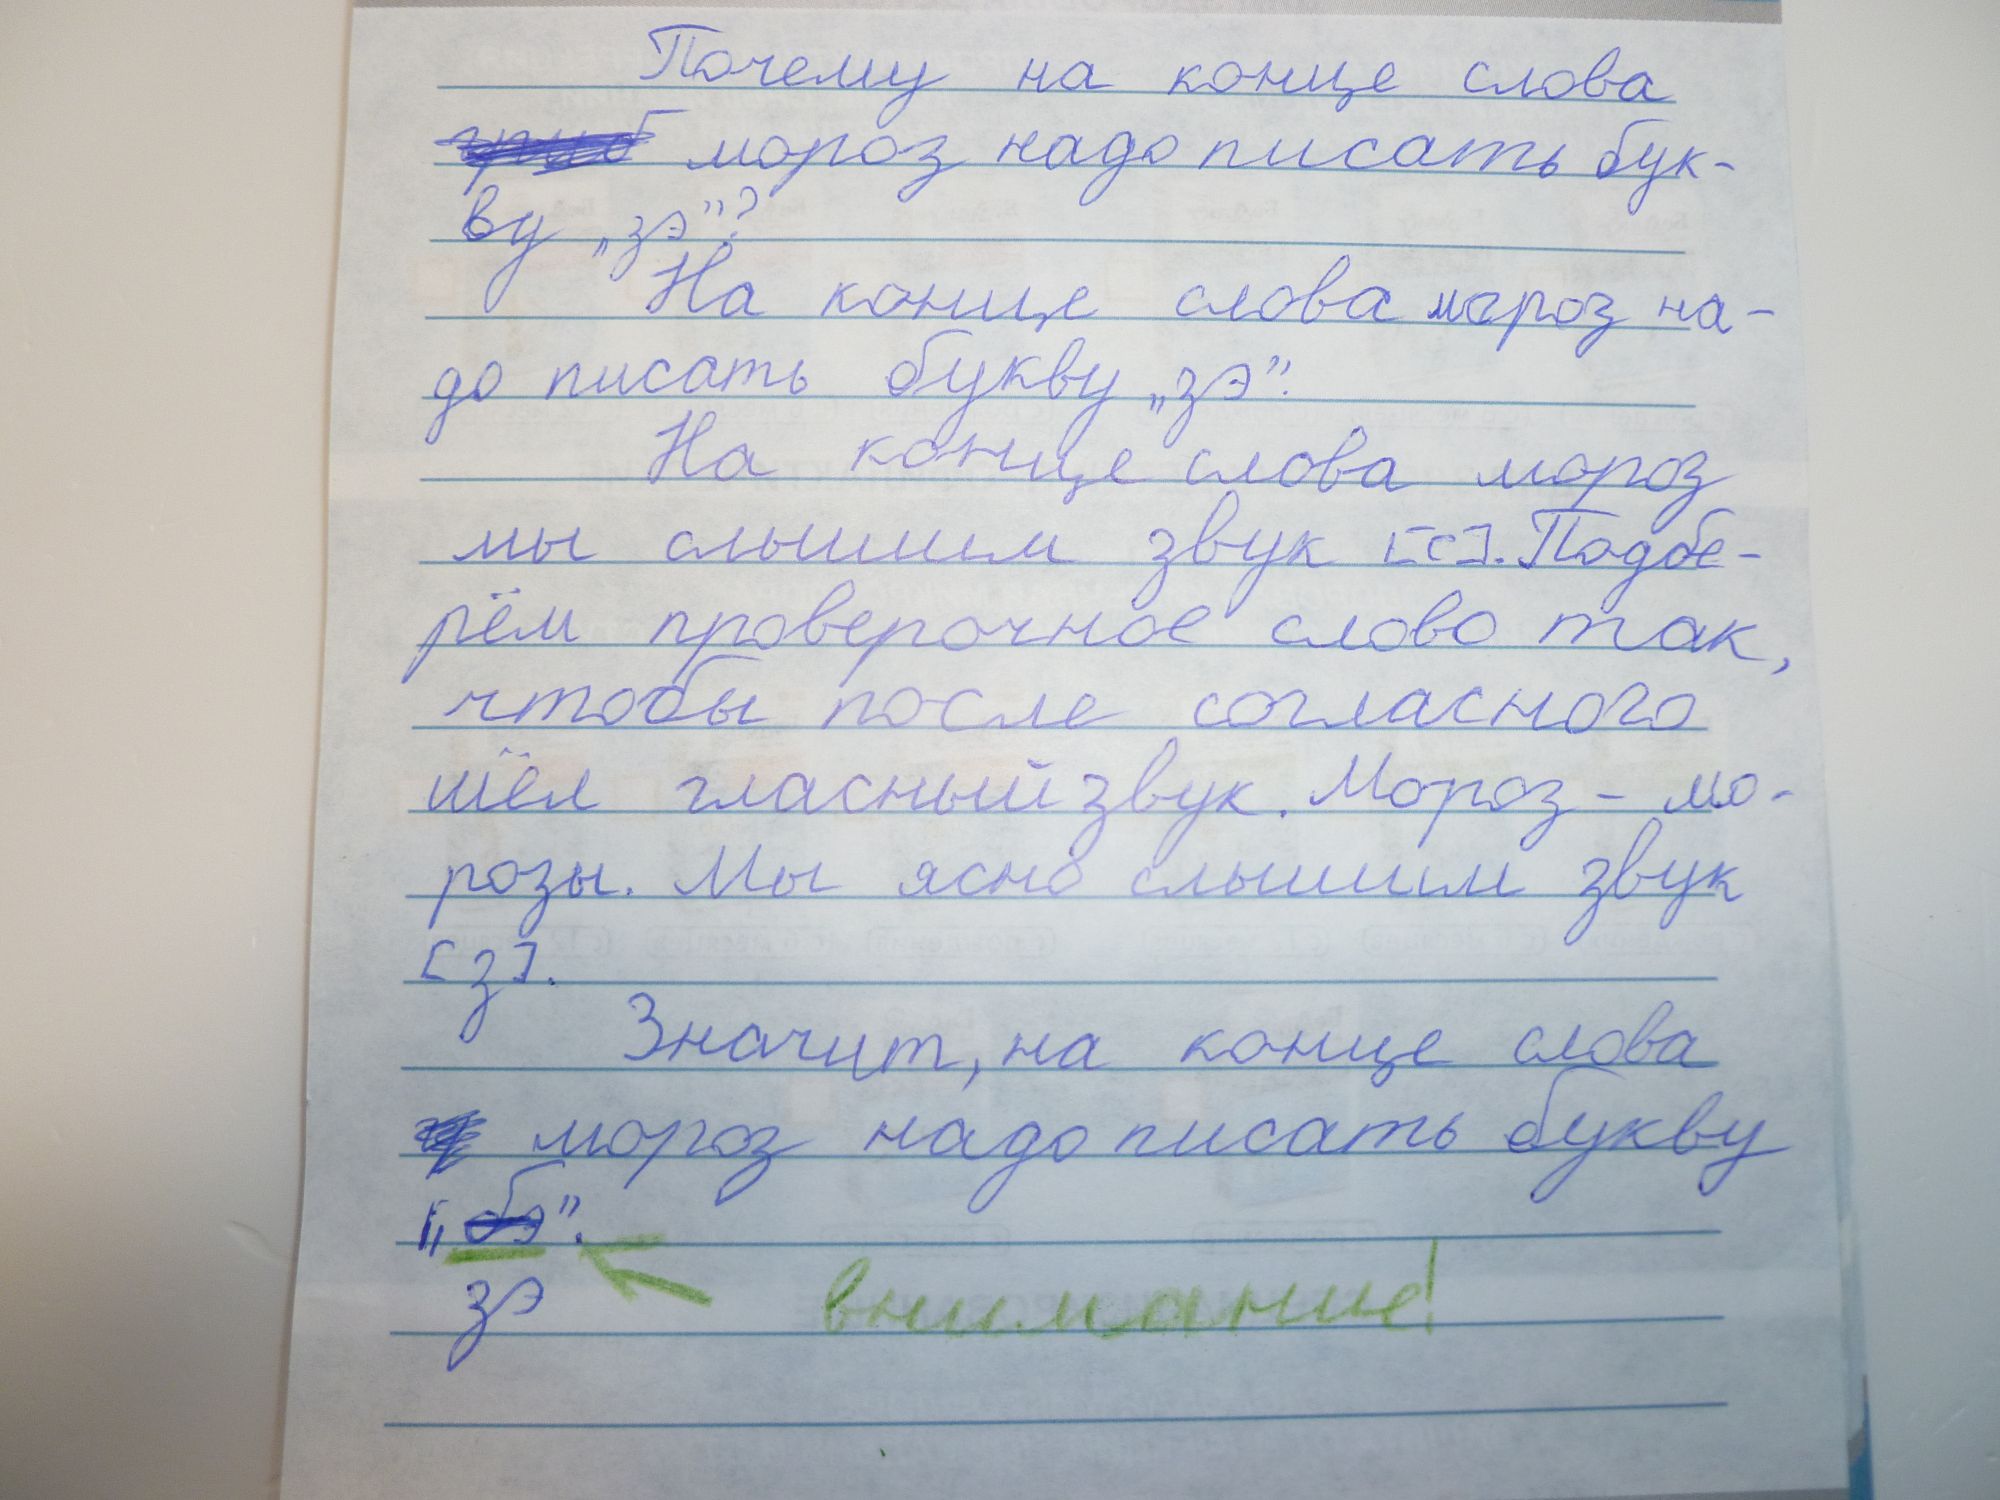 Почему на конце слова
гриб мороз надо писать бук-
ву „зэ"?
На конце слова мороз на-
до писать букву „зэ".
На конце слова мороз
мы слышим звук [с]. Подбе-
рём проверочное слово так,
чтобы после согласного
шёл гласный звук. Мороз - мо-
розы. Мы ясно слышим звук
[з].
Значит, на конце слова
мороз надо писать букву
„бэ".
зэ внимание!